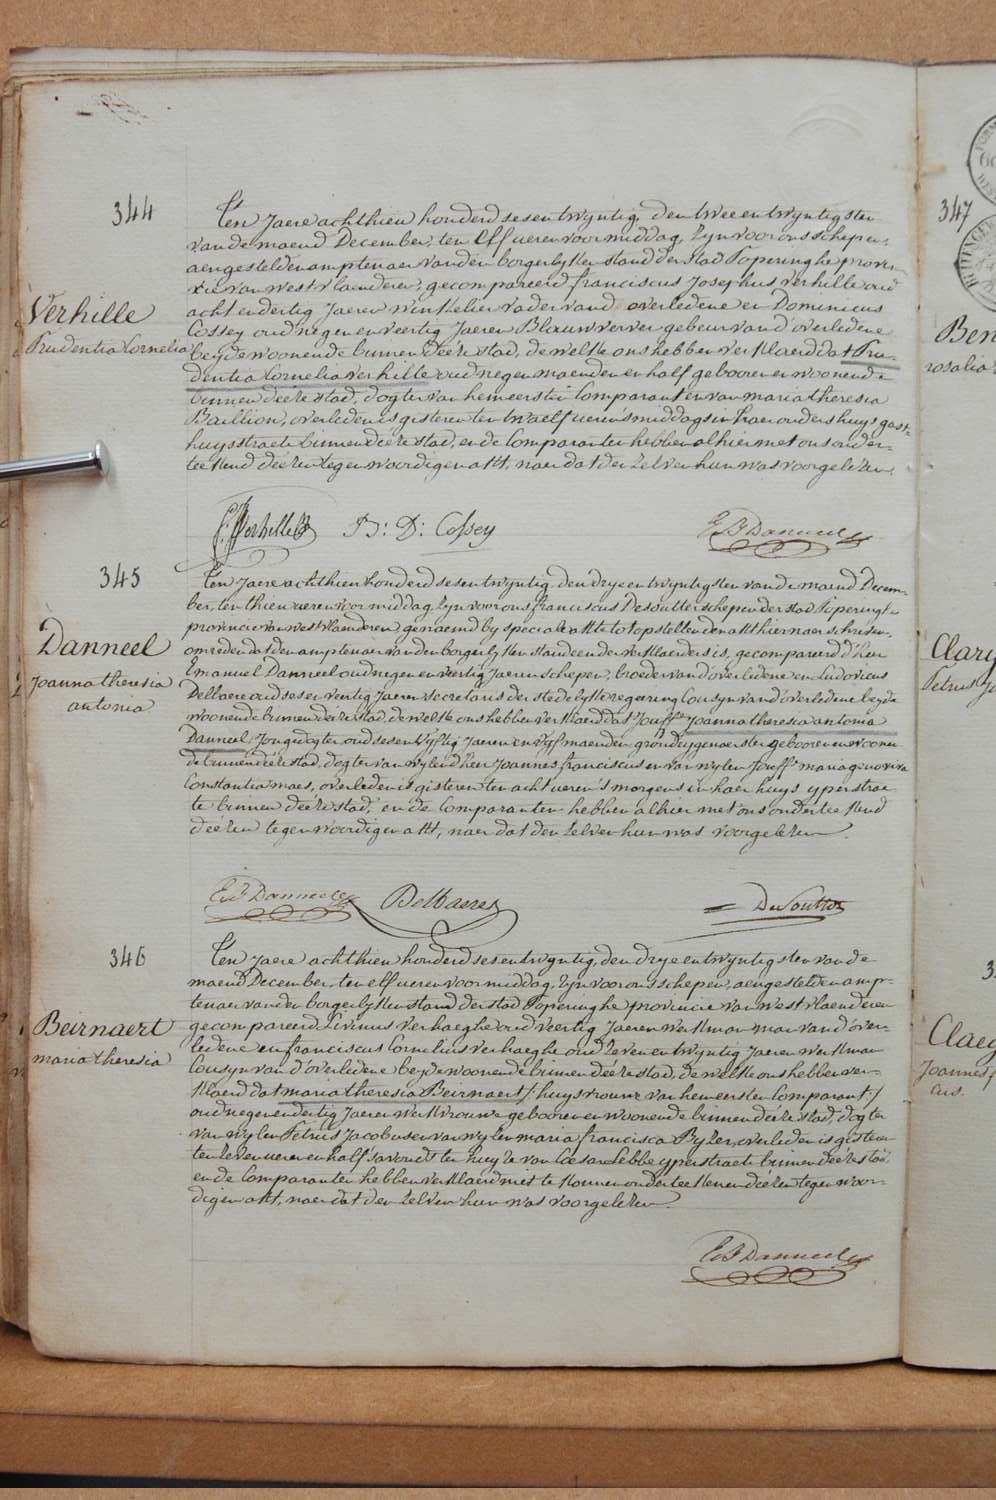 344
Verhille
Prudentia Cornelia
Ten Jaere achthien honderd sesentwyntig, den twee en twyntigsten
van de maend December, ten elf ueren voor middag, Zyn voor ons schepen,
aengestelden amptenaer van den borgerlyken stand der stad Poperinghe provin-
cie van westvlaenderen, gecompareerd franciscus Josephus verhille oud
acht en dertig Jaeren winkelier vader van d'overledene en Dominicus
Cossey oud negen en veertig Jaeren Blauwverver gebeur van d'overledene
beyde woonende binnen deéze stad, de welke ons hebben verklaerd dat Pru-
dentia Cornelia verhille oud negen maenden en half geboren en woonende
binnen deéze stad, dogter van hem eersten Comparant en van maria theresia
Baillion, overleden is gisteren ten twaelf ueren 's middags in haer ouders huys gast-
huysstraete binnen deéze stad, en de Comparanten hebben alhier met ons onder-
teekend deézen tegenwoordigen akt, naer dat den zelven hun was voorgelezen.
Verhille B: D: Cossey E.F. Danneel
345
Danneel
Joanna theresia
antonia
Ten Jaere achthien honderd sesentwyntig den drye en twyntigsten van de maend Decem-
ber, ten thien ueren voor middag, Zyn voor ons franciscus Desoutter schepen der stad Poperinghe
provincie van westvlaenderen genaemd by speciale akte tot opstellen den akt hier naer schreven,
om reden dat den amptenaer van den borgerlyken stand eender verklaerders is, gecompareerd d'heer
Emanuel Danneel oud negen en veertig Jaeren schepen, broeder van d'overledene en Ludovicus
DeBaere oud ses en veertig Jaeren secretaris der stedelyke regering Cousyn van d'overledene beyde
woonende binnen deéze stad, de welke ons hebben verklaerd dat Jouffe Joanna theresia antonia
Danneel Jonge dogter oud ses en vyftig Jaeren en vyf maenden grondeygenaerster geboren en woonen-
de binnen deéze stad, dogter van wylen d'heer Joannes franciscus en van wylen Jouffe maria genoviva
Constantia maes, overleden is gisteren ten acht ueren 's morgens in haer huys yperstrae-
te binnen deéze stad, en de Comparanten hebben alhier met ons onderteekend
deézen tegenwoordigen akt, naer dat den zelven hun was voorgelezen.
E.F. Danneel DeBaere Desoutter
346
Beirnaert
maria theresia
Ten Jaere achthien honderd sesentwyntig, den drye en twyntigsten van de
maend December, ten elf ueren voor middag, Zyn voor ons schepen, aengestelden amp-
tenaer van den borgerlyken stand der stad Poperinghe provincie van westvlaenderen
gecompareerd Livinus verhaeghe oud veertig Jaeren werkman man van d'over-
ledene en franciscus Cornelius verhaeghe oud zeven en twyntig Jaeren werkman
Cousyn van d'overledene beyde woonende binnen deéze stad, de welke ons hebben ver-
klaerd dat maria theresia Beirnaert /: huysvrouwe van hem eersten Comparant :/
oud negen en dertig Jaeren werkvrouwe geboren en woonende binnen deéze stad, dogter
van wylen Petrus Jacobus en van wylen maria francisca Ryzer, overleden is gisteren
ten zeven ueren en half 's avondts ten huyze van Cæsar Lebbe yperstraete binnen deéze stad
en de Comparanten hebben verklaerd niet te konnen onderteekenen deézen tegenwoor-
digen akt, naer dat den zelven hun was voorgelezen.
E.F. Danneel
347
Ben
rosalia
Clary
Petrus Jo
Claey
Joannes f
cus.